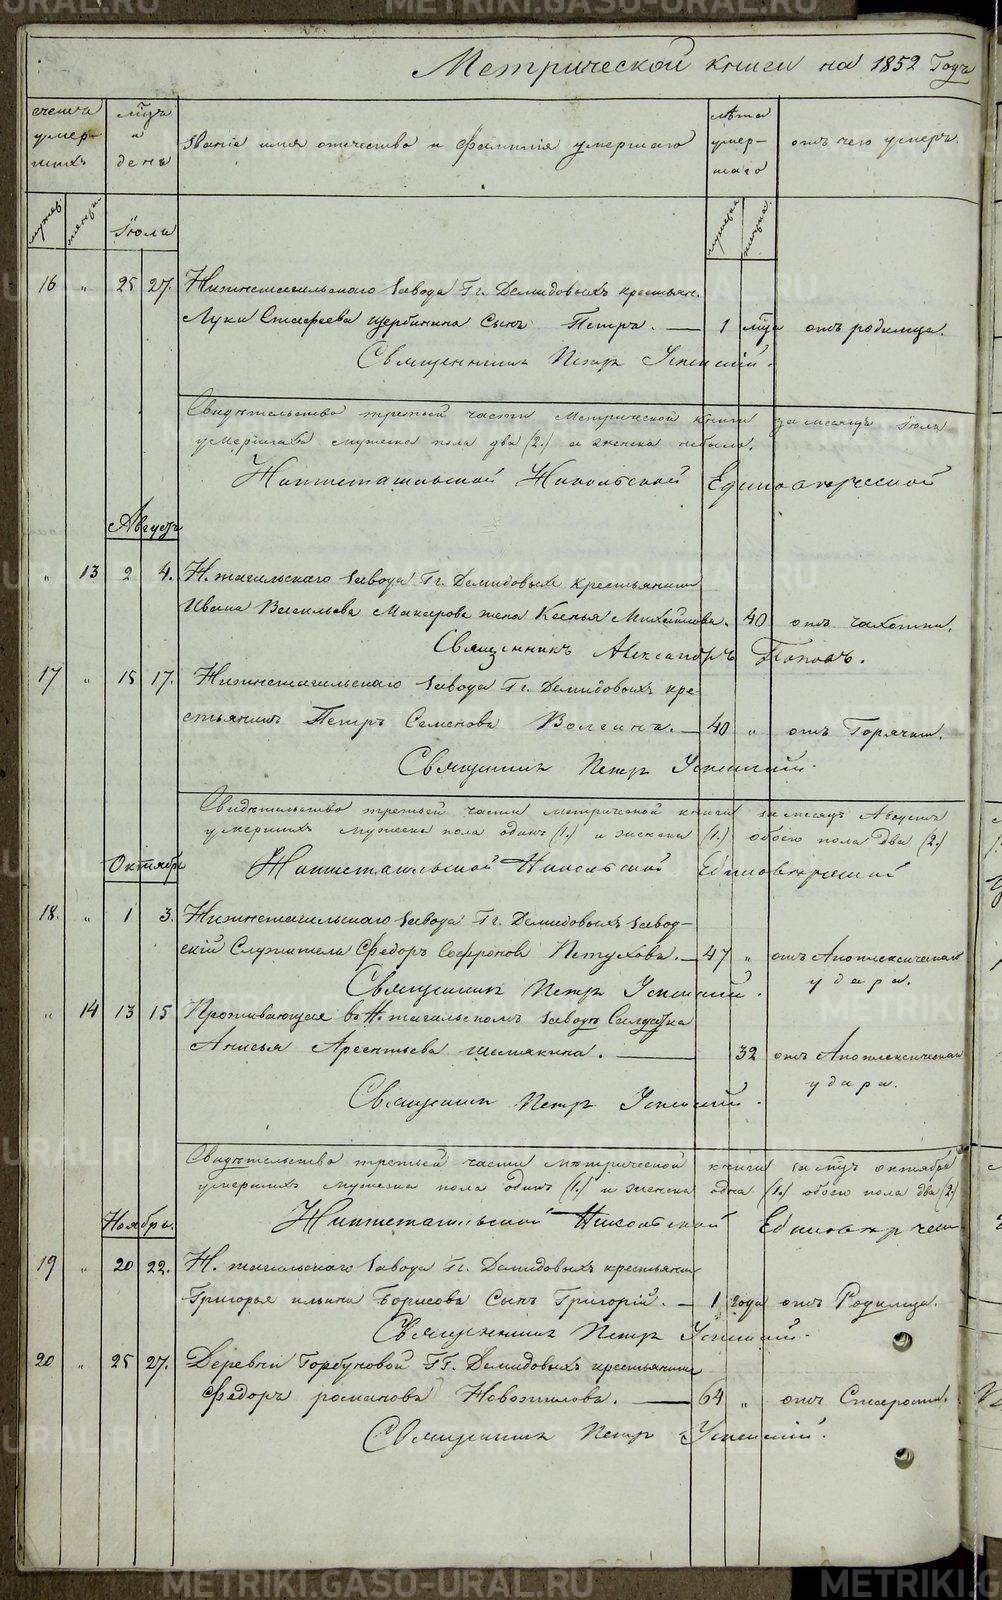 Метрической книги на 1852 Годъ
счетъ умер- шихъ
мца и день
званіе имя отечество и фамилія умершаго
лѣта умер- шаго
отъ чего умеръ.
мужеск
женск
Іюля
мужеска
женска
16 „ 25 27. Нижнетагильскаго завода Гг. Демидовыхъ крестьян.
Луки Стафеева Щербинина Сынъ Петръ. — 1 мца отъ родимца.
Священникъ Петръ Успенскій.
Свидѣтельство третьей части Метрической книги за месяцъ Іюль
умершихъ мужеска пола два (2.) а женска небыло.
Нижнетагильской Никольской Единоверческой
Августъ
„ 13 2 4. Н. тагильскаго завода Гг. Демидовыхъ крестьянина
Ивана Васильева Макарова жена Ксенья Михайлова. 40 отъ чахотки.
Священникъ Александръ Поповъ.
17 „ 15 17. Нижнетагильскаго завода Гг. Демидовыхъ кре-
стьянинъ Петръ Семеновъ Волгинъ. — 40 „ отъ Горячки.
Священникъ Петръ Успенскій.
Свидѣтельство третьей части метрической книги за месяцъ Августъ
умершихъ мужеска пола одинъ (1.) и женска (1.) обоего пола два (2.)
Октябрь
Нижнетагильской Никольской Единоверческой
18. „ 1 3. Нижнетагильскаго завода Гг. Демидовыхъ завод-
скій Служитель Федоръ Софронов Петухова. — 47 „ отъ Апоплексическаго
удара.
Священникъ Петръ Успенскій.
„ 14 13 15 Проживающая въ Н. тагильскомъ заводѣ Солдатка
Анисья Арсентьева Шемякина. — 32 отъ Апоплексическаго
удара.
Священникъ Петръ Успенскій.
Свидѣтельство третьей части метрической книги за мцъ октябрь
умершихъ мужеска пола одинъ (1.) и женска одна (1.) обоего пола два (2)
Ноябрь.
Нижнетагильской Никольской
19 „ 20 22. Н. тагильскаго завода Гг. Демидовыхъ крестьянин
Григорья ильина Борисова Сынъ Григорій. — 1 года отъ Родимца.
Священникъ Петръ Успенскій.
20 „ 25 27. Деревни Горбуновой ГГ. Демидовыхъ крестьянинъ
Федоръ романова Новожилова. — 64 „ отъ Старости.
Священникъ Петръ Успенскій.
METRIKI.GASO-URAL.RU